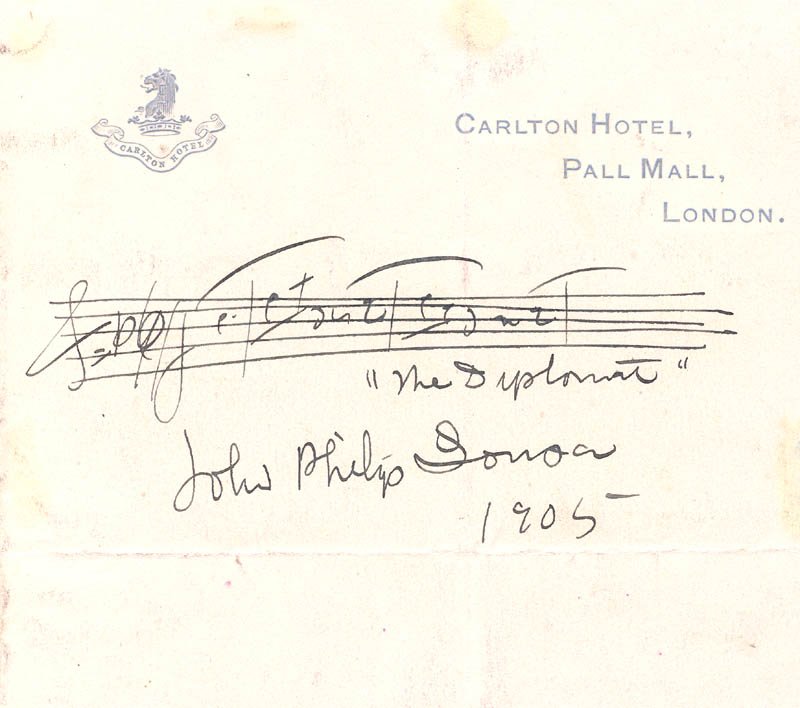 CARLTON HOTEL
CARLTON HOTEL,
PALL MALL,
LONDON.
"The Diplomat"
John Philip Sousa
1905